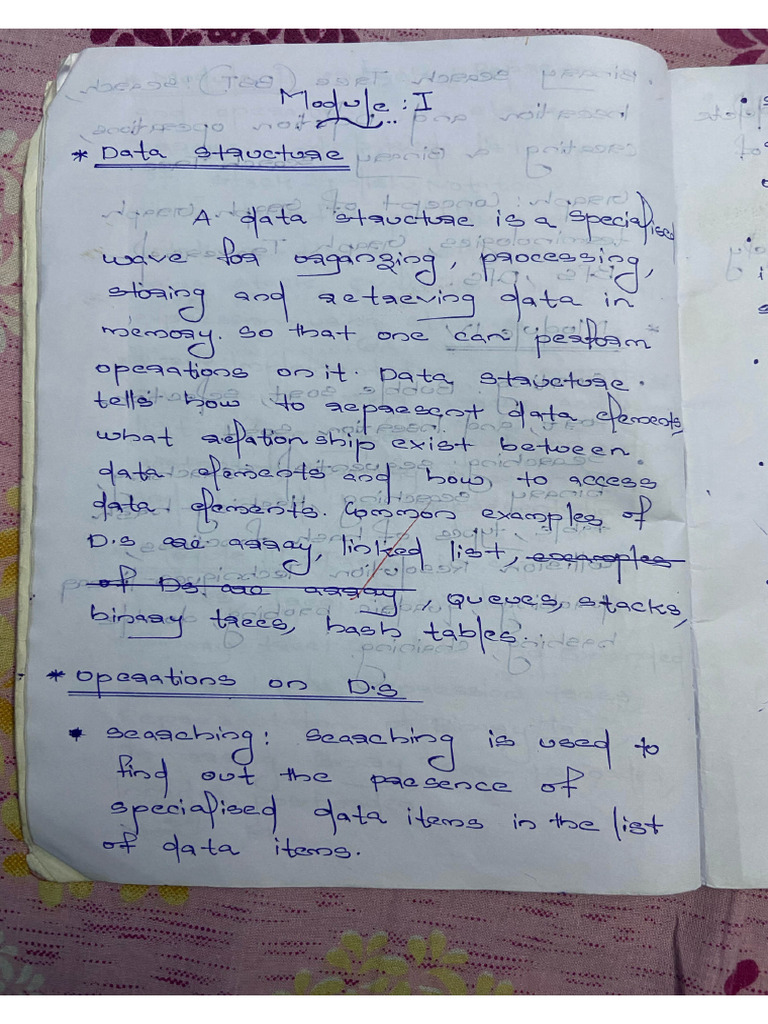 Module : I
* Data structure
A data structure is a specialised
wave for organzing, processing,
storing and retreving data in
memory. so that one can perform
operations on it. Data structure.
tells how to represent data elements,
what relation ship exist between
data elements and how to access
data elements. Common examples of
D.s are array, linked list, examples
of Ds are array, Queues, stacks,
binary trees, hash tables.
* Operations on D.s
* searching : searching is used to
find out the presence of
specialised data items in the list
of data items.